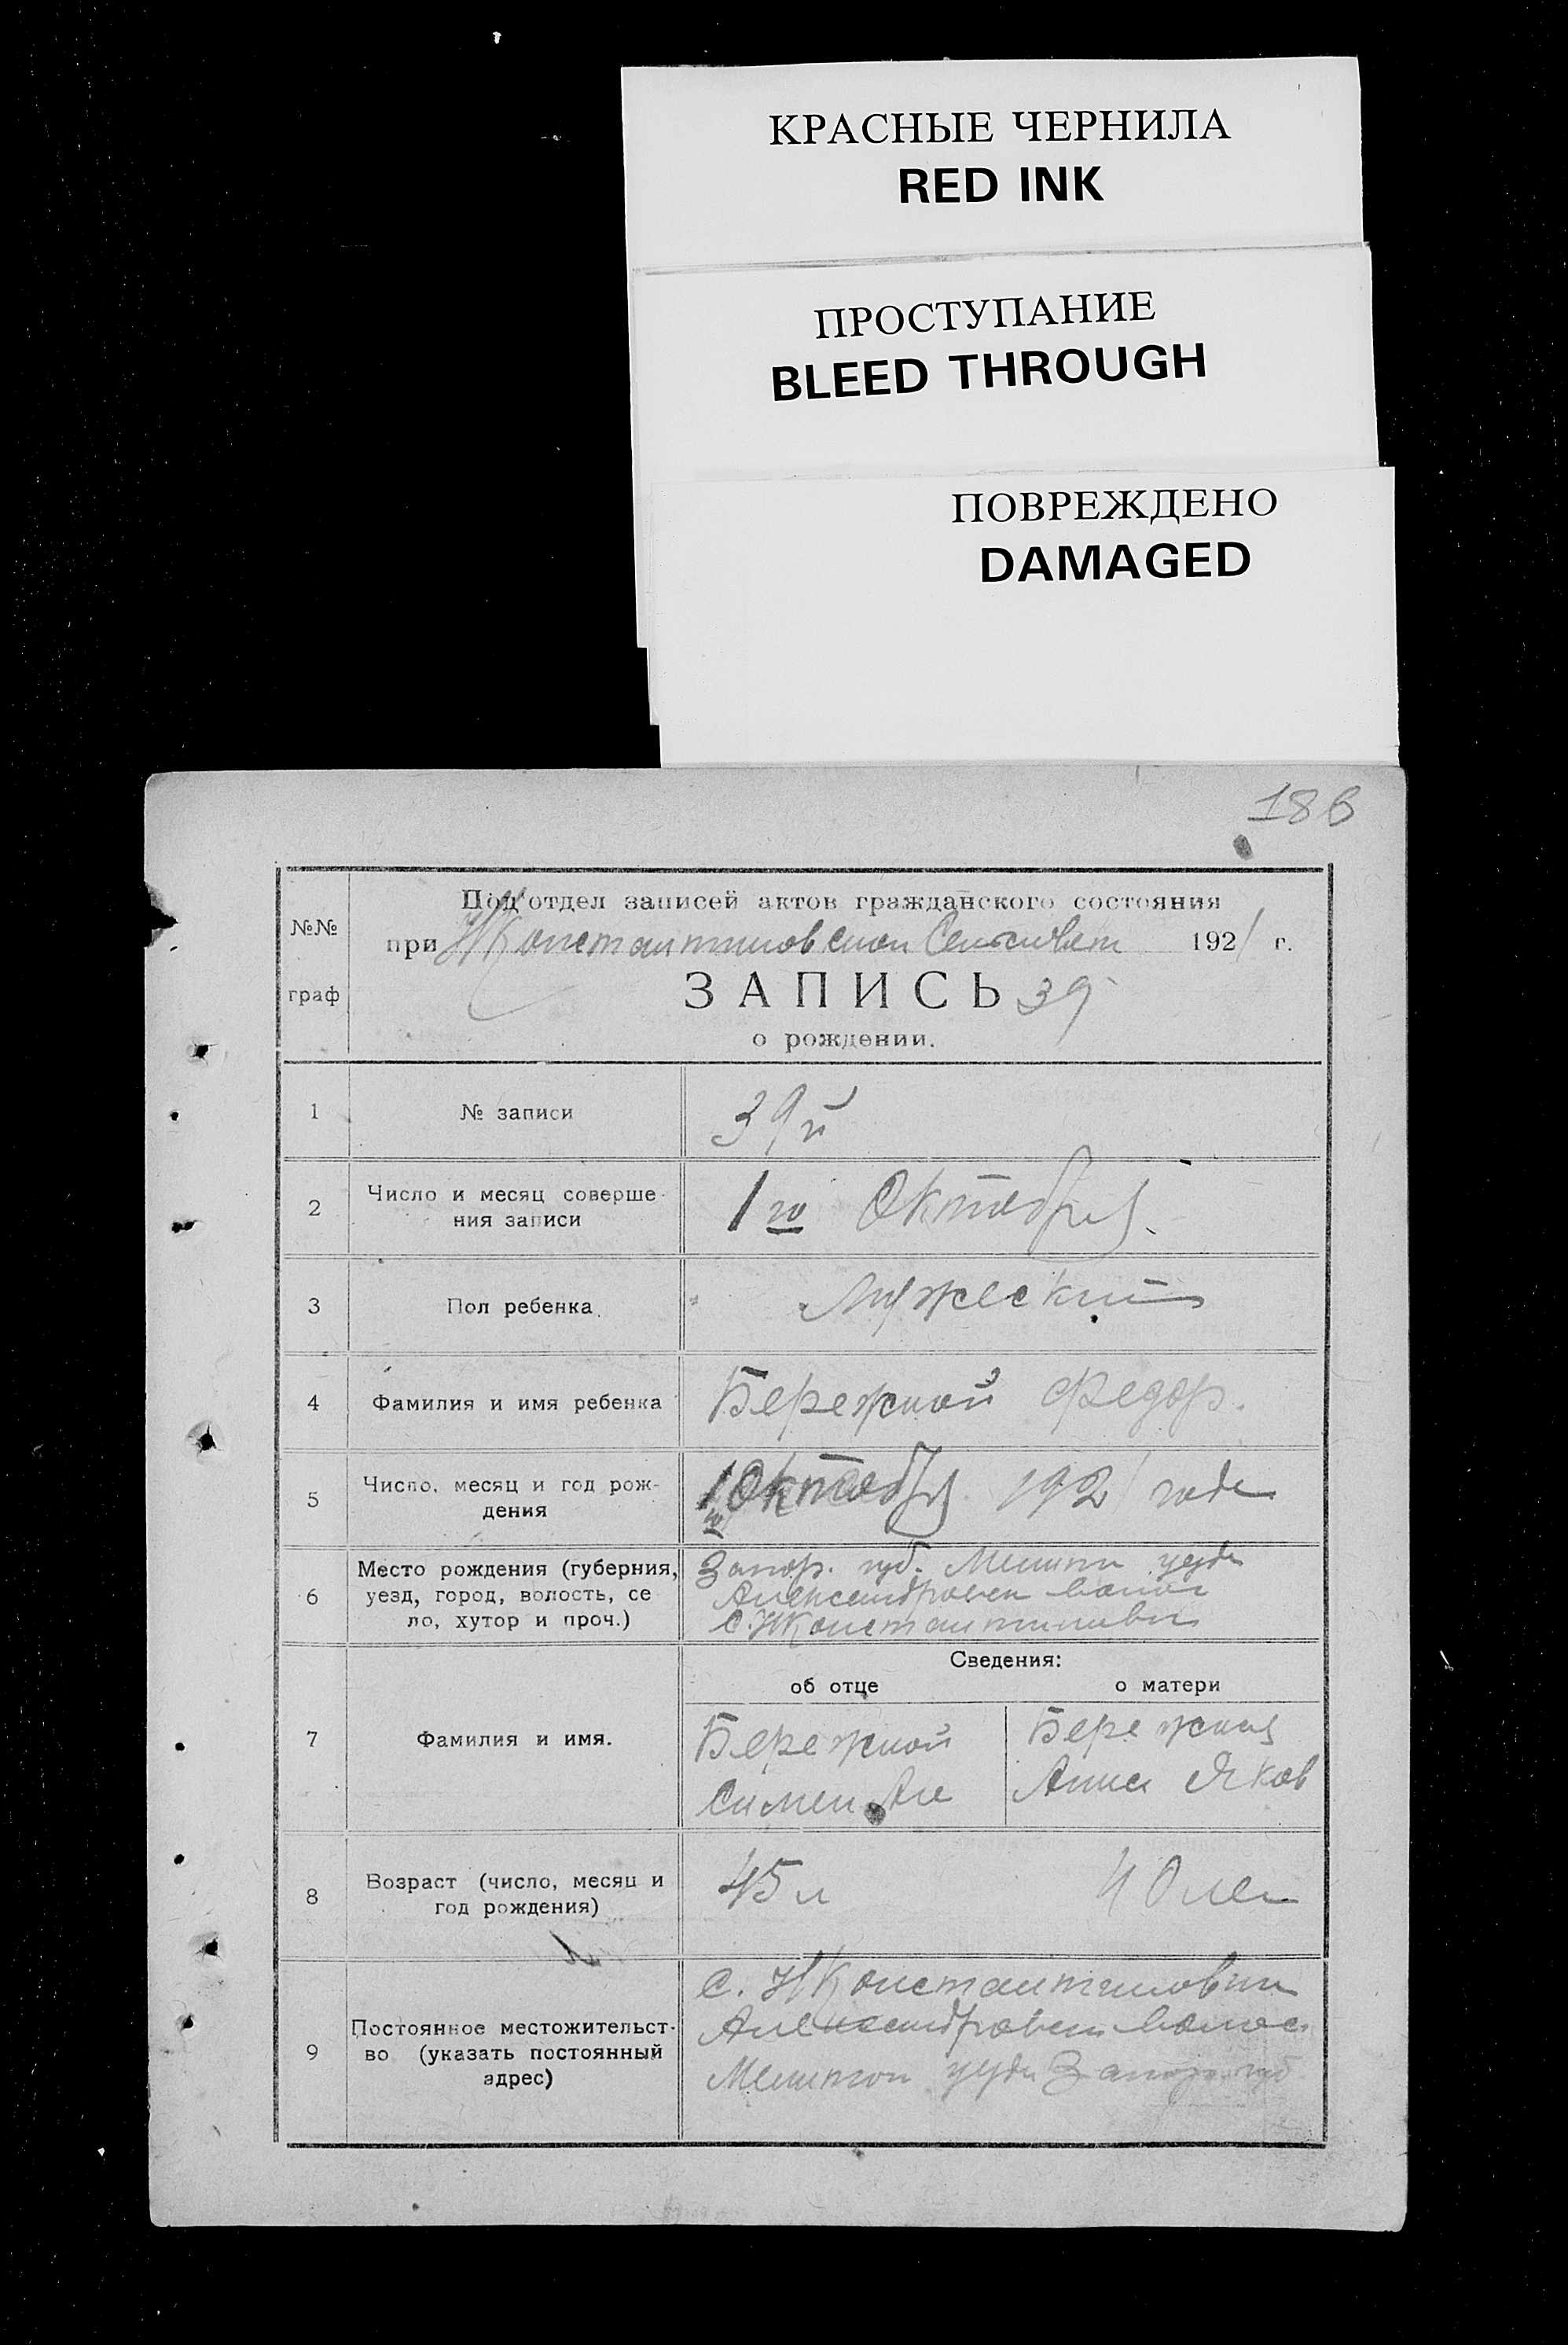 КРАСНЫЕ ЧЕРНИЛА
RED INK
ПРОСТУПАНИЕ
BLEED THROUGH
ПОВРЕЖДЕНО
DAMAGED
186
№№
граф
Подотдел записей актов гражданского состояния
при НКонстантиновском 1921 г.
ЗАПИСЬ 39
о рождении.
1
№ записи
39й
2
Число и месяц соверше-
ния записи
1го Октября.
3
Пол ребенка
Мужеский
4
Фамилия и имя ребенка
Бережной Федор.
5
Число, месяц и год рож-
дения
1го Октября 1921 года
6
Место рождения (губерния,
уезд, город, волость, се
ло, хутор и проч.)
Запор. губ. уезда
Александровск волос
с. НКонстантиновки
Сведения:
об отце
о матери
7
Фамилия и имя.
Бережной
Симен Ал
Бережная
Анна Яков
8
Возраст (число, месяц и
год рождения)
45 л
40 лет
9
Постоянное местожительст-
во (указать постоянный
адрес)
с. НКонстантиновки
Александровск волос
уезда Запор. губ